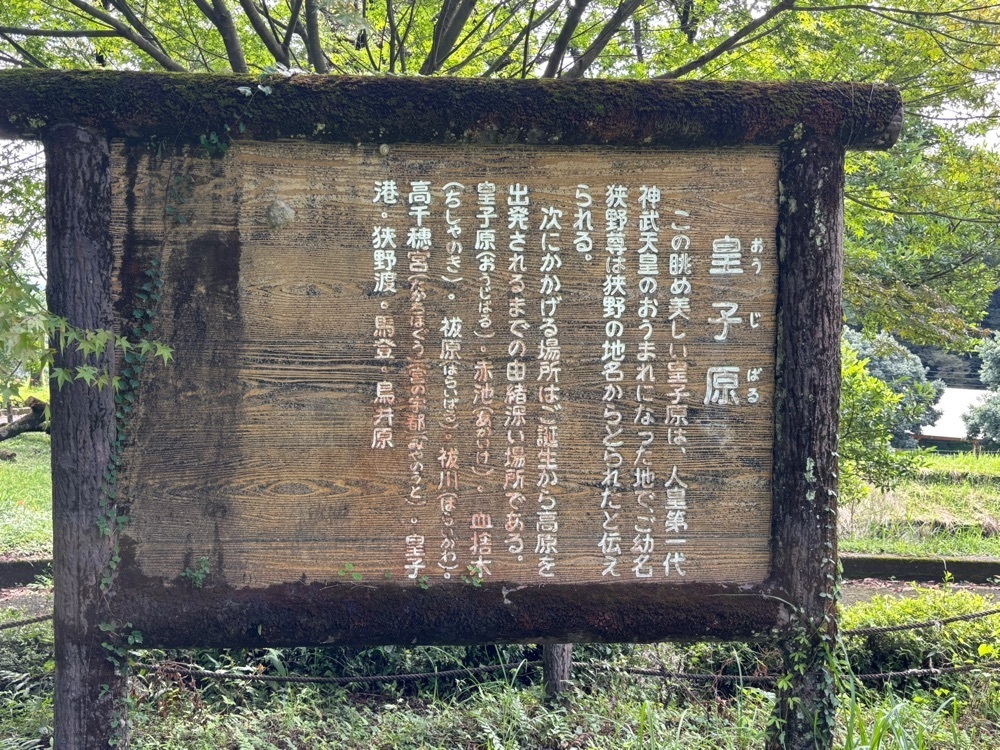 皇子原
おうじばる
この眺め美しい皇子原は、人皇第一代
神武天皇のおうまれになった地で、ご幼名
狭野尊は狭野の地名からとられたと伝え
られる。
次にかかげる場所はご誕生から高原を
出発されるまでの由緒深い場所である。
皇子原(おうじばる)。赤池(あかいけ)。血捨木
(ちしゃのき)。祓原(はらいばる)。祓川(はらいかわ)。
高千穂宮(たかちほぐう)宮の宇都(みやのうと)。皇子
港。狭野渡。馬登。鳥井原